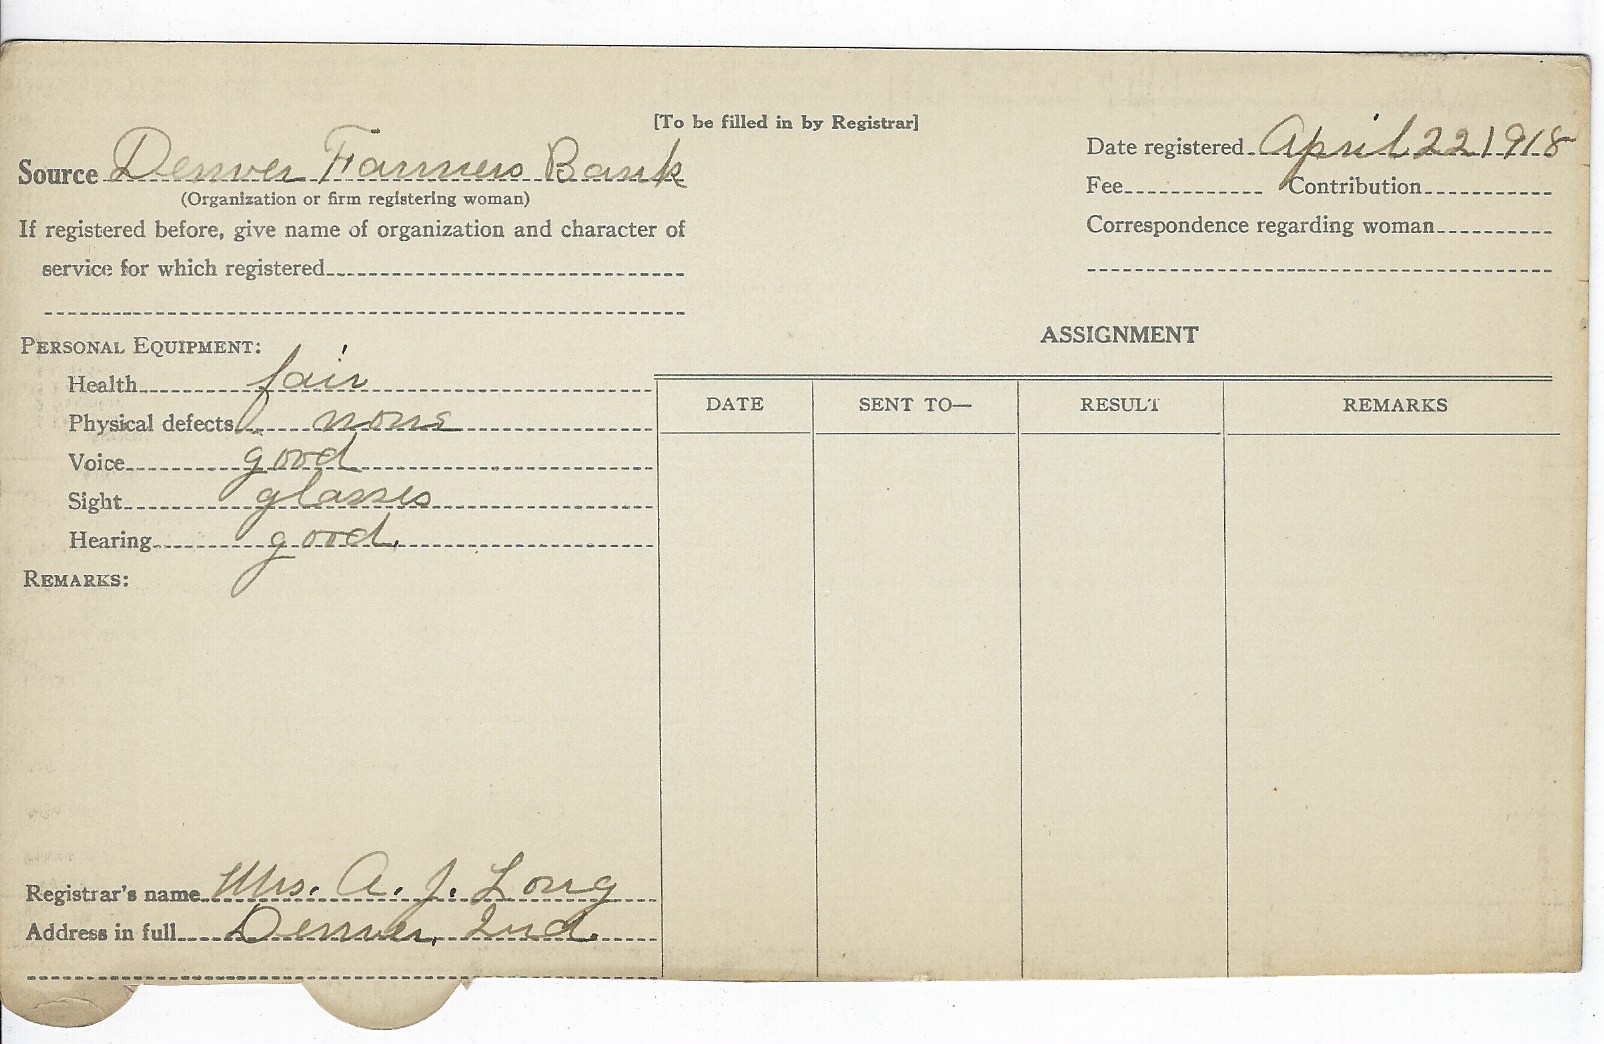 [To be filled in by Registrar]
Source Denver Farmers Bank
(Organization or firm registering woman)
If registered before, give name of organization and character of
service for which registered
Date registered April 22 1918
Fee Contribution
Correspondence regarding woman
PERSONAL EQUIPMENT:
Health fair
Physical defects none
Voice good
Sight glasses
Hearing good.
REMARKS:
Registrar's name Mrs. A. J. Long
Address in full Denver, Ind.
ASSIGNMENT
DATE SENT TO— RESULT REMARKS